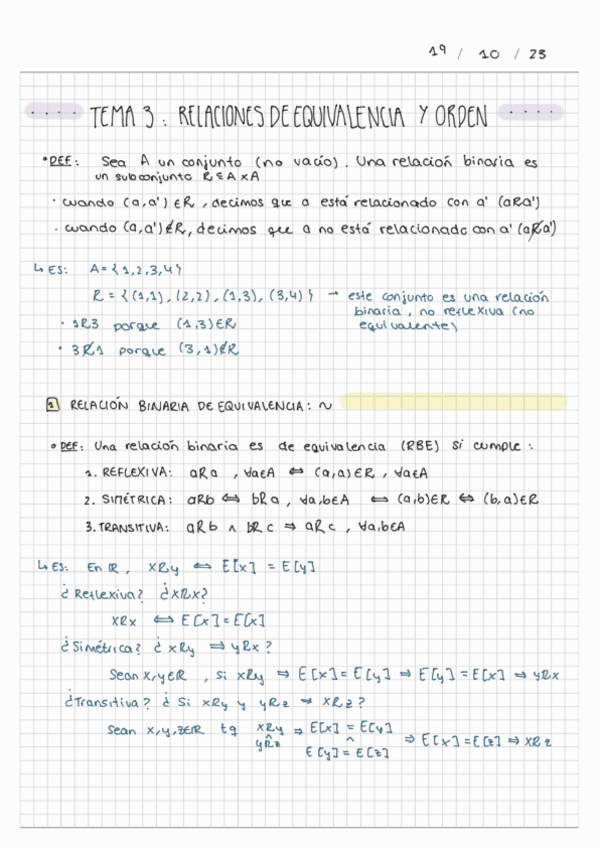 19 / 10 / 23
TEMA 3: RELACIONES DE EQUIVALENCIA Y ORDEN
• DEF: Sea A un conjunto (no vacío). Una relación binaria es
un subconjunto R ⊆ A x A
· cuando (a,a') ∈ R, decimos que a está relacionado con a' (aRa')
· cuando (a,a') ∉ R, decimos que a no está relacionado con a' (aR̸a')
↳ EJ: A = {1,2,3,4}
R = {(1,1), (2,2), (1,3), (3,4)} → este conjunto es una relación
binaria, no reflexiva (no
equivalente)
· 1R3 porque (1,3) ∈ R
· 3R̸1 porque (3,1) ∉ R
1 RELACIÓN BINARIA DE EQUIVALENCIA: ~
• DEF: Una relación binaria es de equivalencia (RBE) si cumple:
1. REFLEXIVA: aRa, ∀a∈A ⇔ (a,a)∈R, ∀a∈A
2. SIMÉTRICA: aRb ⇔ bRa, ∀a,b∈A ⇔ (a,b)∈R ⇔ (b,a)∈R
3. TRANSITIVA: aRb ∧ bRc ⇒ aRc, ∀a,b∈A
↳ EJ: En R, xRy ⇔ E[x] = E[y]
¿Reflexiva? ¿xRx?
xRx ⇔ E[x] = E[x]
¿Simétrica? ¿xRy ⇒ yRx?
Sean x,y∈R, si xRy ⇒ E[x] = E[y] ⇒ E[y] = E[x] ⇒ yRx
¿Transitiva? ¿Si xRy y yRz ⇒ xRz?
Sean x,y,z∈R tq xRy ⇒ E[x] = E[y]
∧ ∧ ⇒ E[x] = E[z] ⇒ xRz
yRz E[y] = E[z]